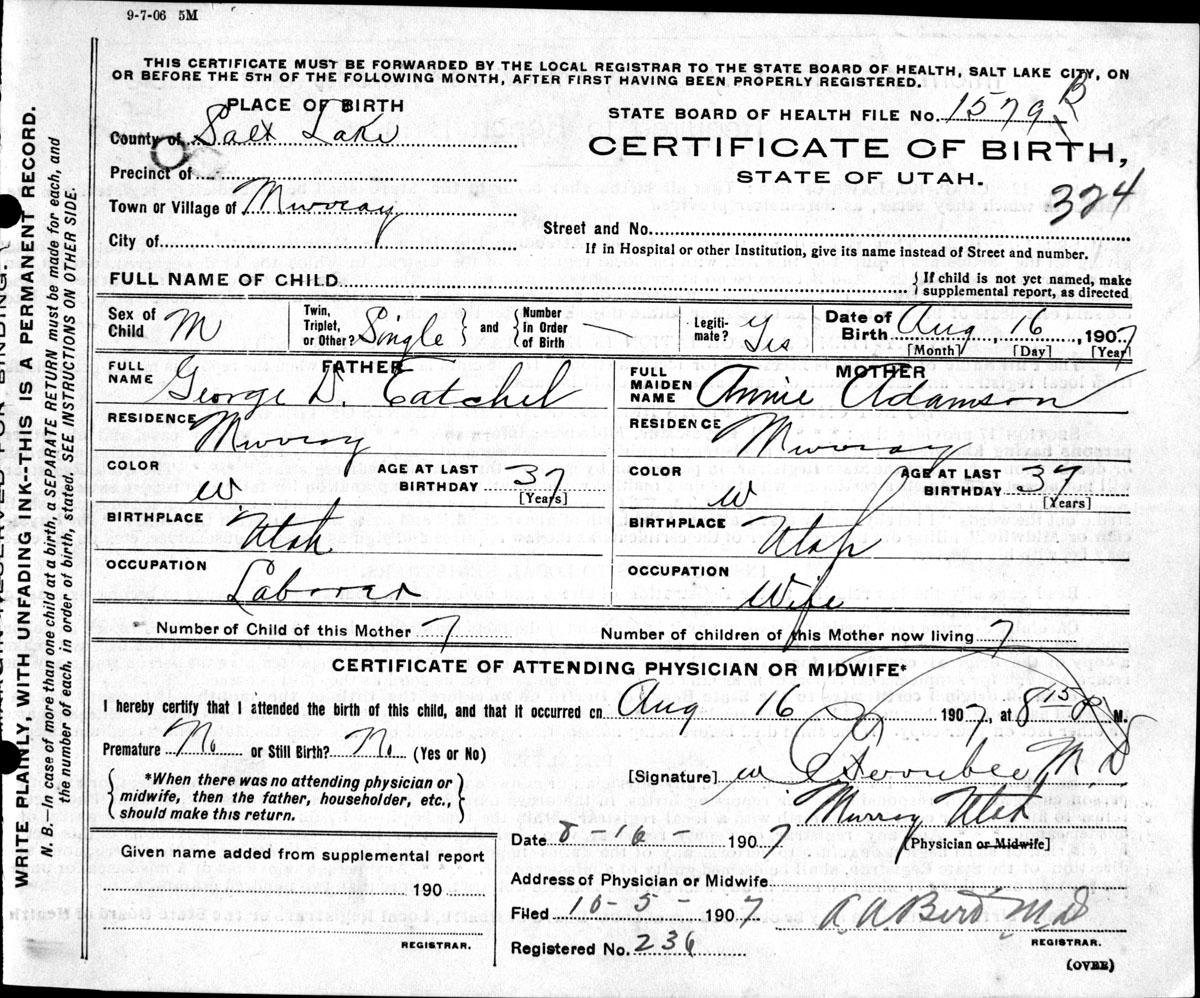 9-7-06 5M
THIS CERTIFICATE MUST BE FORWARDED BY THE LOCAL REGISTRAR TO THE STATE BOARD OF HEALTH, SALT LAKE CITY, ON
OR BEFORE THE 5TH OF THE FOLLOWING MONTH, AFTER FIRST HAVING BEEN PROPERLY REGISTERED.
PLACE OF BIRTH
County of Salt Lake
Precinct of
Town or Village of Murray
City of
STATE BOARD OF HEALTH FILE No. 1579
CERTIFICATE OF BIRTH,
STATE OF UTAH.
324
Street and No.
If in Hospital or other Institution, give its name instead of Street and number.
FULL NAME OF CHILD
{If child is not yet named, make
supplemental report, as directed
Sex of Child M
Twin, Triplet, or Other? Single } and { Number In Order of Birth —
Legiti- mate? Yes
Date of Birth Aug 16, 1907
[Month] [Day] [Year]
FATHER
FULL NAME George D. Catchel
RESIDENCE Murray
COLOR W AGE AT LAST BIRTHDAY 37 [Years]
BIRTHPLACE Utah
OCCUPATION Laborer
MOTHER
FULL MAIDEN NAME Annie Adamson
RESIDENCE Murray
COLOR W AGE AT LAST BIRTHDAY 37 [Years]
BIRTHPLACE Utah
OCCUPATION Wife
Number of Child of this Mother 7 Number of children of this Mother now living 7
CERTIFICATE OF ATTENDING PHYSICIAN OR MIDWIFE*
I hereby certify that I attended the birth of this child, and that it occurred on Aug 16 1907, at 8 15 P M.
Premature No or Still Birth? No (Yes or No)
{*When there was no attending physician or
midwife, then the father, householder, etc.,
should make this return.}
[Signature] M D
Murray Utah
[Physician or Midwife]
Date 8-16- 1907
Given name added from supplemental report
190
REGISTRAR.
Address of Physician or Midwife
Filed 10-5- 1907
A A Bird M D
REGISTRAR.
Registered No. 236
(OVER)
WRITE PLAINLY, WITH UNFADING INK--THIS IS A PERMANENT RECORD.
N. B.—In case of more than one child at a birth, a SEPARATE RETURN must be made for each, and
the number of each, in order of birth, stated. SEE INSTRUCTIONS ON OTHER SIDE.